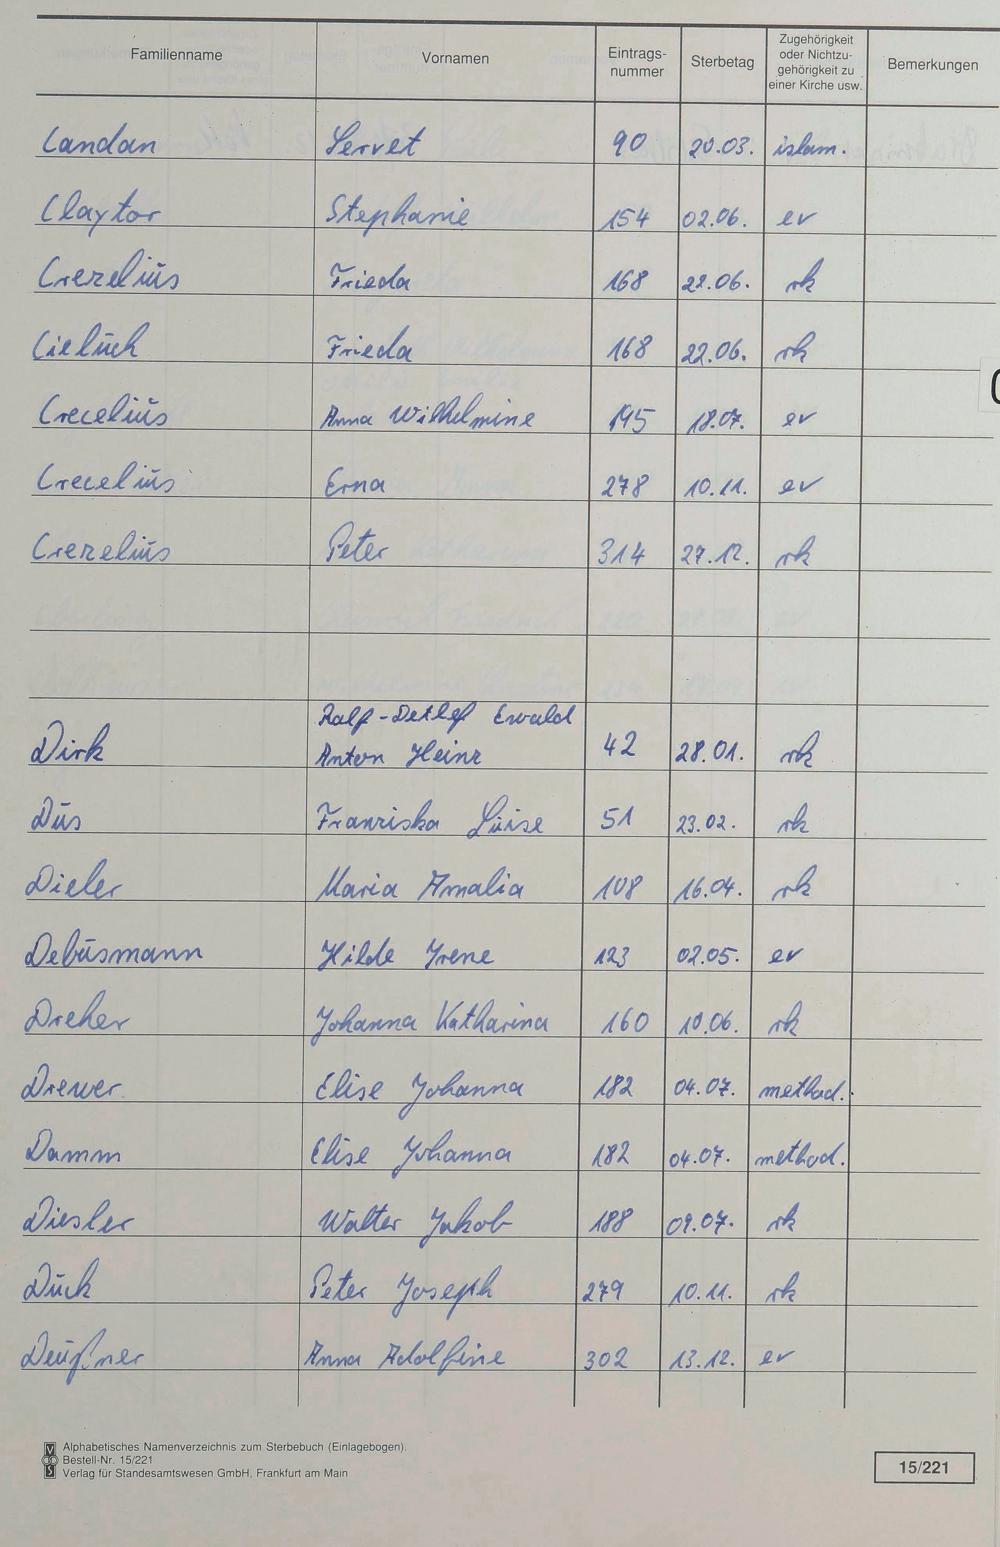 Familienname Vornamen Eintrags-nummer Sterbetag Zugehörigkeit oder Nichtzu-gehörigkeit zu einer Kirche usw. Bemerkungen
Candan Servet 90 20.03. islam.
Claytor Stephanie 154 02.06. ev
Crezelius Frieda 168 22.06. rk
Cieluch Frieda 168 22.06. rk
Crecelius Anna Wilhelmine 195 18.07. ev
Crecelius Erna 278 10.11. ev
Crezelius Peter 314 27.12. rk
Ralf-Detlef Ewald
Dirk Anton Heinz 42 28.01. rk
Düs Franziska Luise 51 23.02. rk
Dieler Maria Amalia 108 16.04. rk
Debusmann Hilde Irene 123 02.05. ev
Dreher Johanna Katharina 160 10.06. rk
Drewer Elise Johanna 182 04.07. method.
Damm Elise Johanna 182 04.07. method.
Diesler Walter Jakob 188 09.07. rk
Duck Peter Joseph 279 10.11. rk
Deußner Anna Adolfine 302 13.12. ev
Alphabetisches Namenverzeichnis zum Sterbebuch (Einlagebogen).
Bestell-Nr. 15/221
Verlag für Standesamtswesen GmbH, Frankfurt am Main
15/221